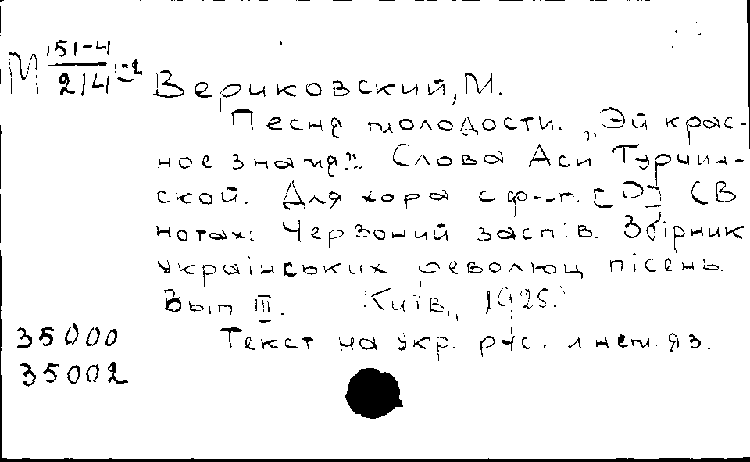 М 151-4
214
Вериковский, М.
Песня молодости. „Эй крас-
ное знамя". Слова Аси Турчин-
ской. Для хора с ф-п. [D] (В
нотах: Червоний заспів. Збірник
українських революц пісень.
Вып III. Київ, 1925.
35000 Текст на укр. рус. и нем. яз.
35002